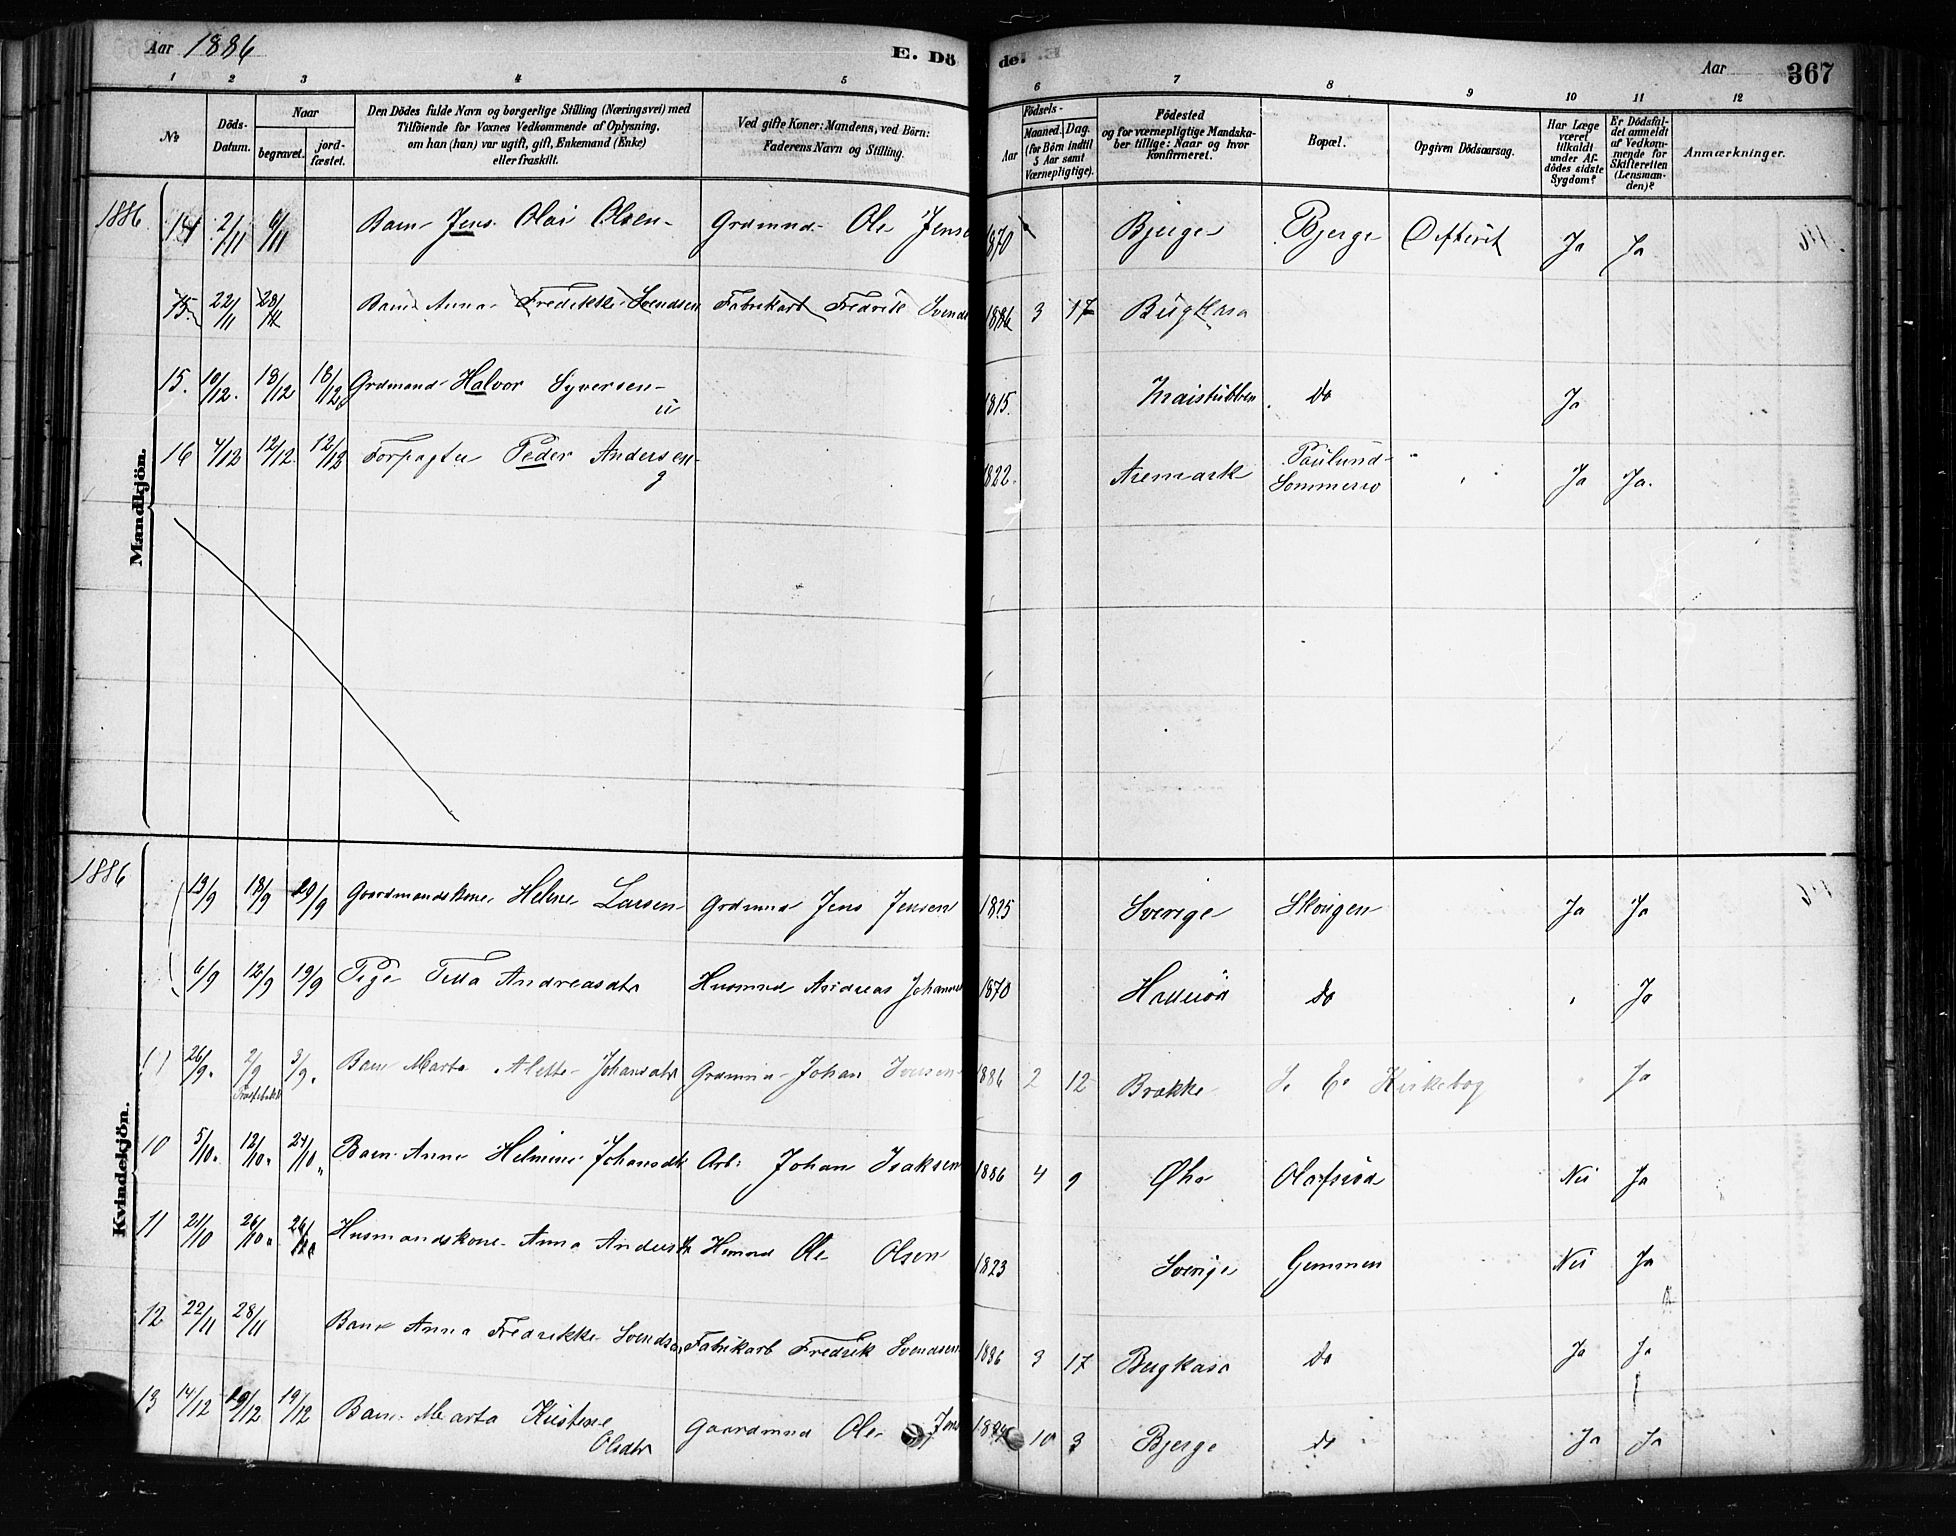 Aar 1886 E. Dö
de. Aar 367
1 2 3 4 5 6 7 8 9 10 11 12
No
Döds-Datum.
Naar
begravet.
jord-fæstet.
Den Dödes fulde Navn og borgerlige Stilling (Næringsvei) med
Tilföiende for Voxnes Vedkommende af Oplysning,
om han (hun) var ugift, gift, Enkemand (Enke)
eller fraskilt.
Ved gifte Koner: Mandens, ved Börn:
Faderens Navn og Stilling.
Födsels-
Aar
Maaned. Dag.
(for Börn indtil
5 Aar samt
Værnepligtige).
Födested
og for værnepligtige Mandska-
ber tillige: Naar og hvor
konfirmeret.
Bopæl.
Opgiven Dödsaarsag.
Har Læge
været
tilkaldt
under Af-
dödes sidste
Sygdom?
Er Dödsfal-
det anmeldt
af Vedkom-
mende for
Skifteretten
(Lensman-
den)?
Anmærkninger.
Mandkjön.
1886 14 2/11 6/11 Barn Jens Olai Olsen Grdmnd Ole Jens 1870 Bjerge Bjerge Difterit Ja Ja
15. 22/11 28/11 Barn Anna Fredrikke Svendsen Fabrikarb Fredrik Svends 1886 3 17
15. 10/12. 18/12 18/12 Grdmand Halvor Syversen 1815. Do Ja
u
16 7/12 12/12. 12/12 Forpagter Peder Andersen 1822. Aremark Sommerro Ja Ja.
g
Kvindekjön.
1886 13/9 18/9 /9 Gaardmandskone Helene Larsen Grdmnd Jens Jensen 1825 Sverige Skougen Ja Ja
6/9 12/9 19/9 Pige Andreasdtr Husmnd Andreas Johannes 1870 Do Ja
26/9. 2/9 3/9. Barn Marte Alette Johansdtr Grdmnd Johan 1886 2 12 Brække Kirkebog Ja
10 5/10. 12/10. 24/10. Barn Anne Helmine Johansdtr Arb: Johan Isaksen 1886 4 9 Nei Ja
11 21/10 26/10. Husmandskone Anna Andersdtr Hsmnd Ole Olsen 1823 Sverige Gemmen Nei Ja
12 22/11 28/11 Barn Anna Fredrikke Svendsen Fabrikarb Fredrik Svendsen 1886 3 17 Do Ja Ja
13 14/12 19/12 19/12 Barn Marta Kristine Gaardmnd Ole Jens 10 3 Bjerge do Ja Ja
Olsdtr